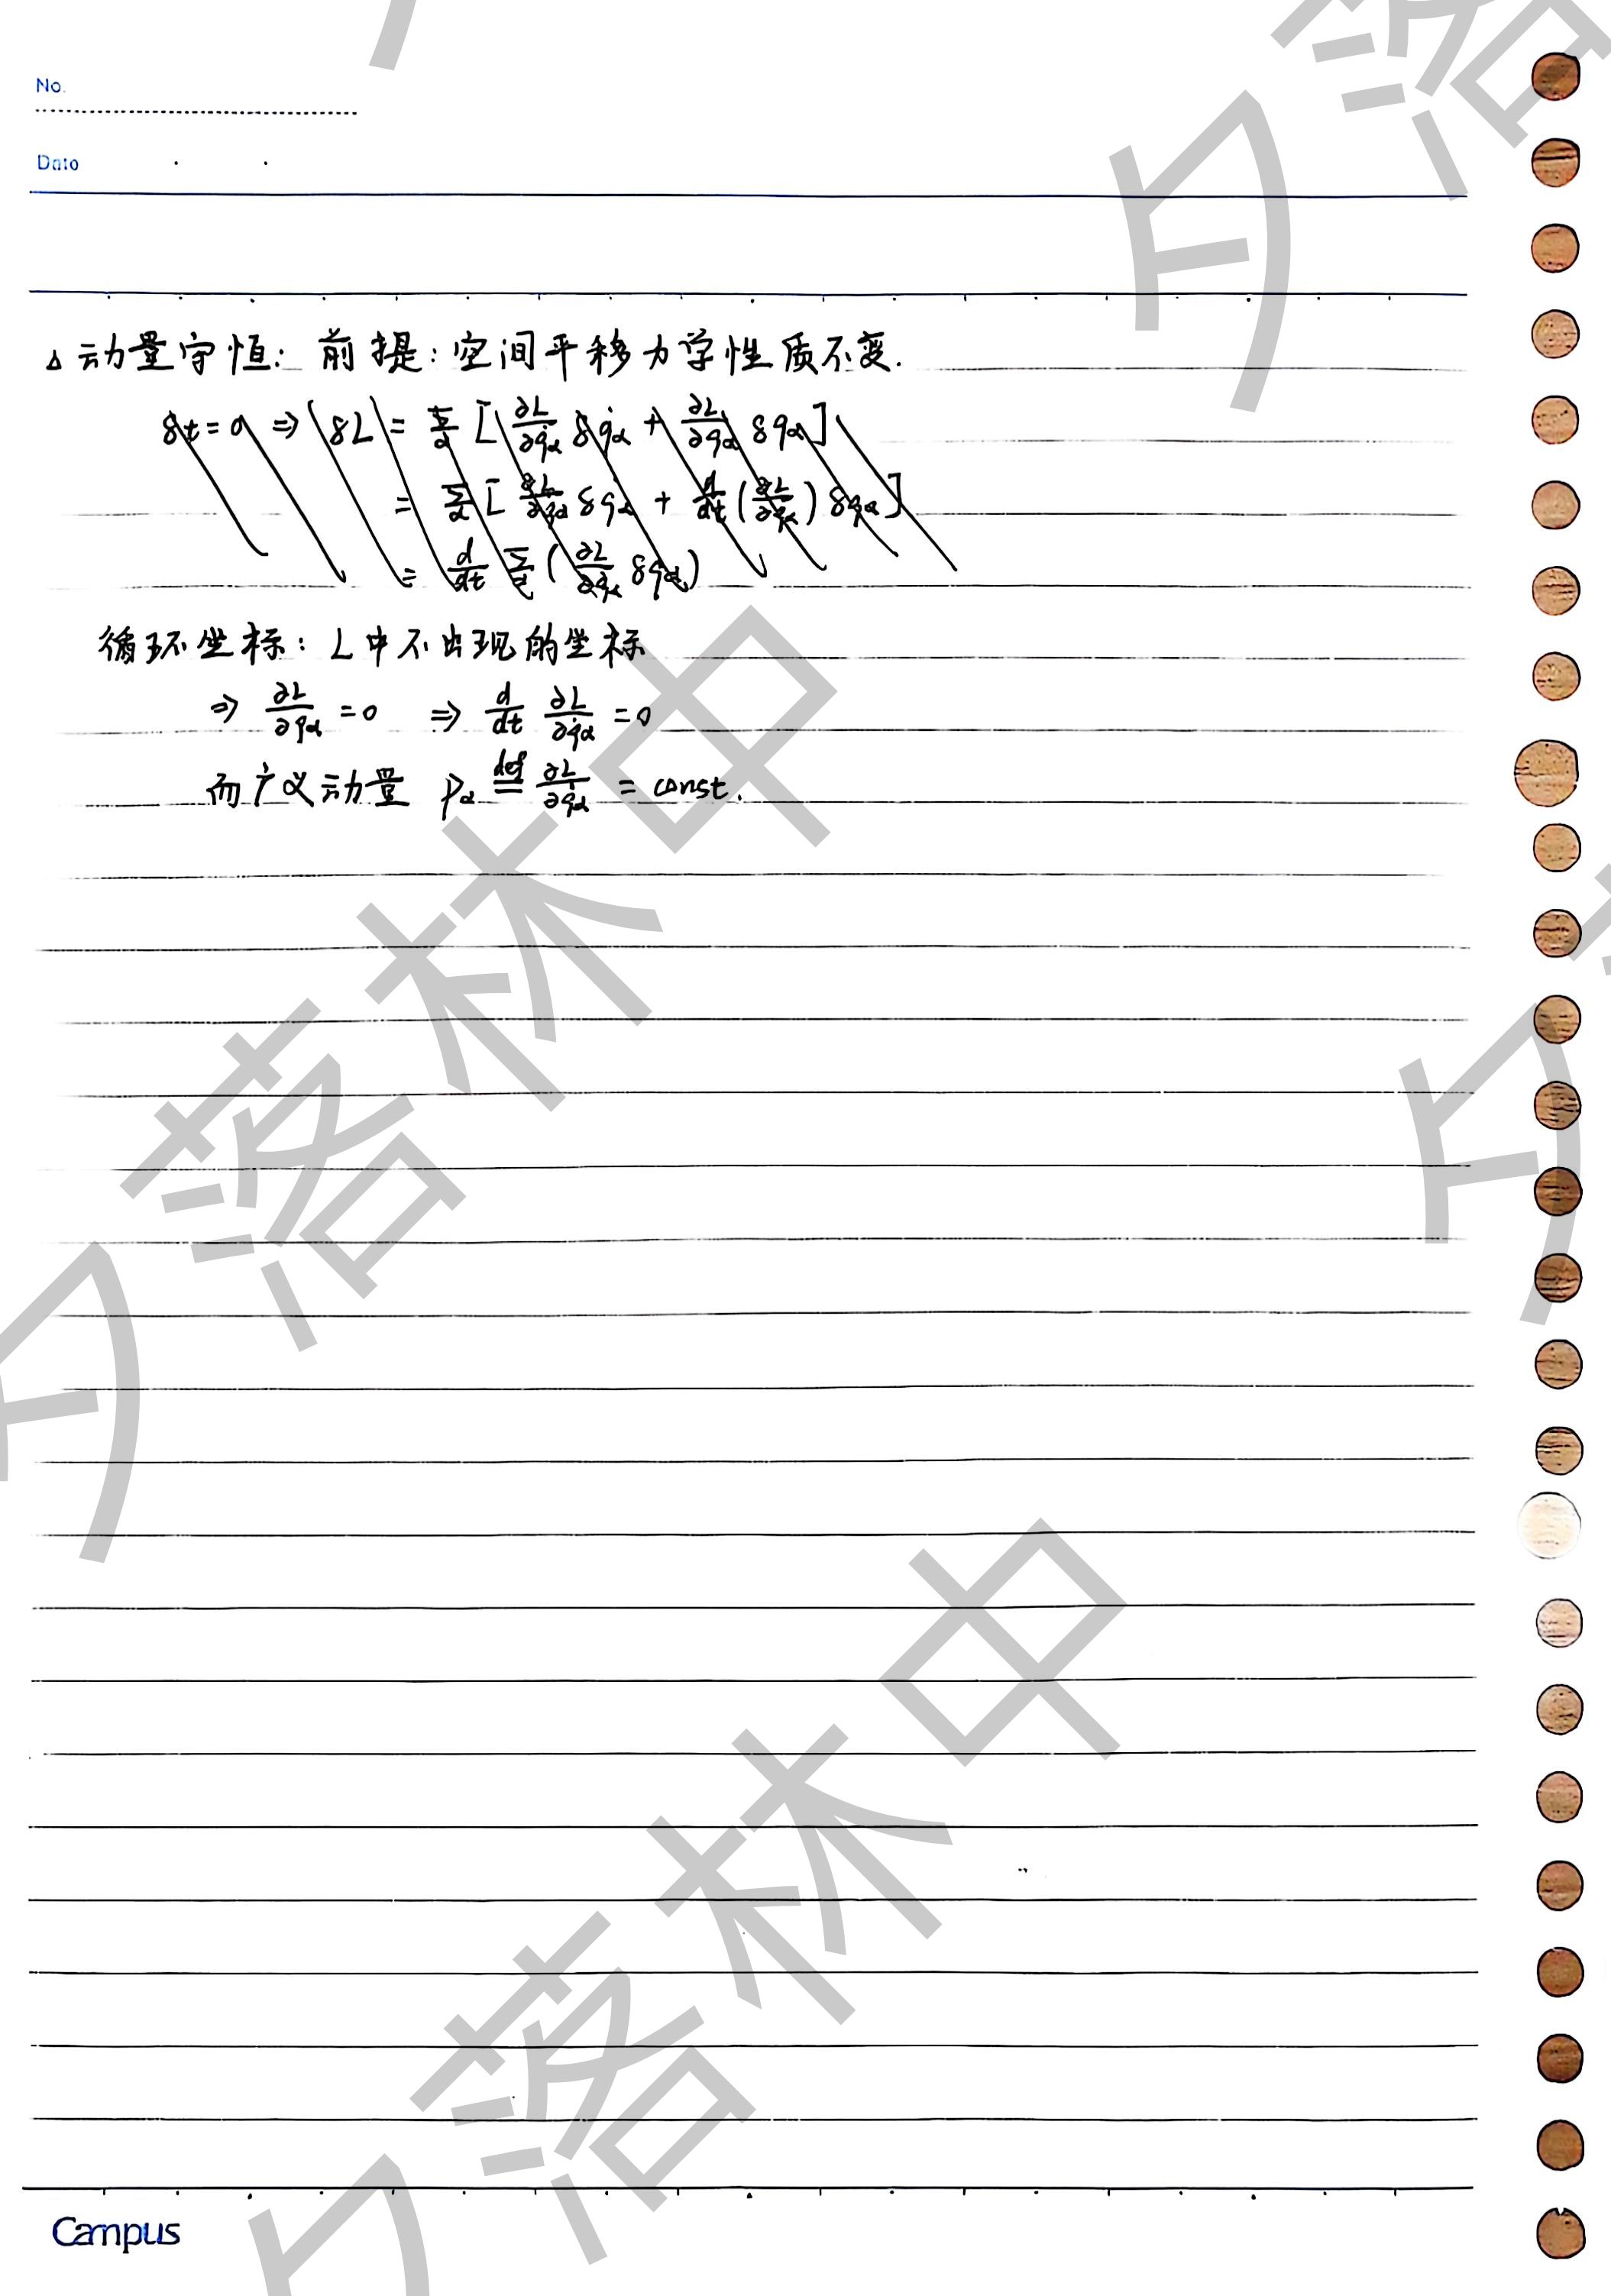 No.
Date
△ 动量守恒: 前提: 空间平移力学性质不变.
δt=0 ⇒ δL = Σ_α [ ∂L/∂q̇_α δq̇_α + ∂L/∂q_α δq_α ]
= Σ_α [ ∂L/∂q̇_α δq̇_α + d/dt (∂L/∂q̇_α) δq_α ]
= d/dt Σ_α ( ∂L/∂q̇_α δq_α )
循环坐标: L中不出现的坐标
⇒ ∂L/∂q_α = 0 ⇒ d/dt ∂L/∂q̇_α = 0
而广义动量 p_α ≝ ∂L/∂q̇_α = const.
夕落林中
夕落林中
Campus